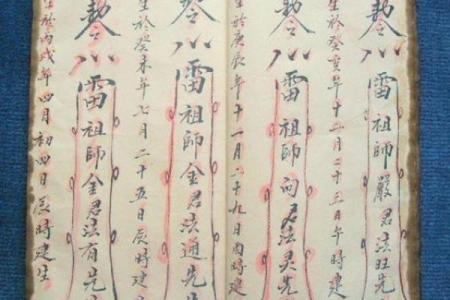 勅令雷祖師嚴君法旺先
生於癸亥年十二月二十三日午時建
勅令雷祖師向君法灵先
生於庚辰年十一月二十九日酉時建
勅令雷祖師金君法通先生
生於癸未年七月二十五日辰時建
勅令雷祖師金君法有先
生於丙戌年四月初四日辰時建生